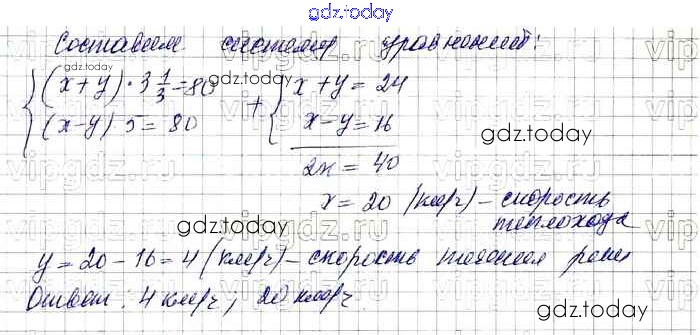 gdz.today
Составим систему уравнений:
{(x+y)·3 1/3=80 + {x+y=24
(x-y) 5=80 x-y=16
gdz.today
2x=40
x=20 (км/ч) – скорость теплохода
gdz.today
y=20-16=4 (км/ч) – скорость течения реки
Ответ: 4 км/ч, 20 км/ч
gdz.today
vipgdz.ru